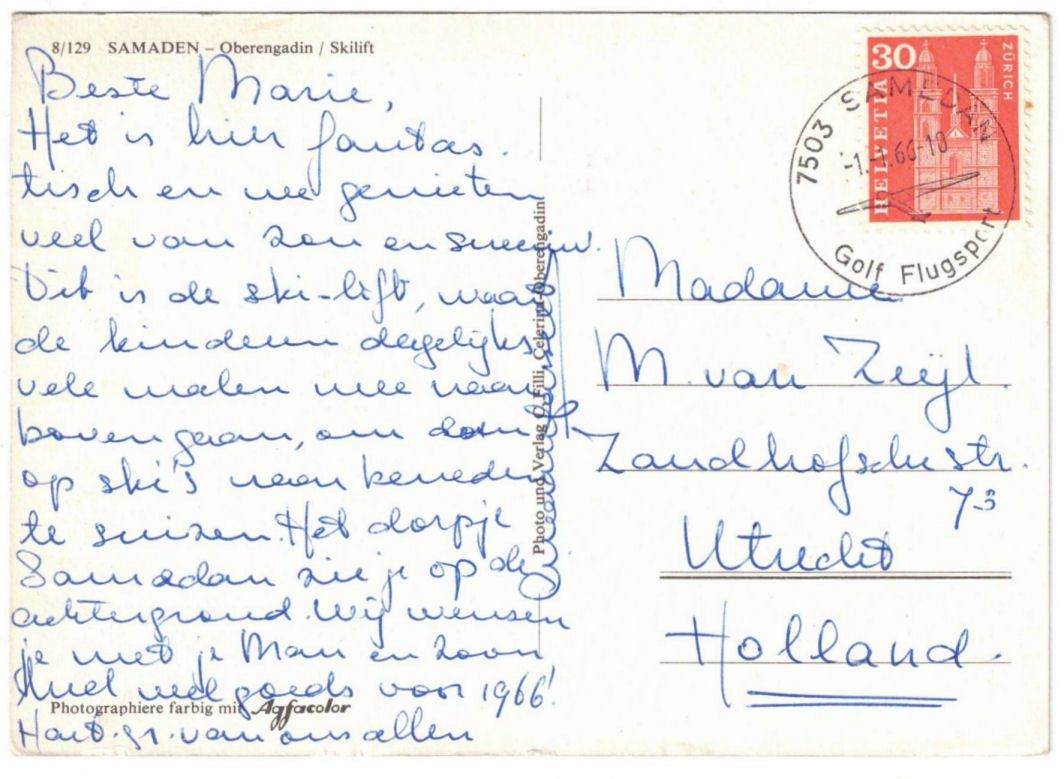 8/129 SAMADEN – Oberengadin / Skilift
Beste Marie,
Het is hier fantas.
tisch en we genieten
veel van zon en sneeuw.
Dit is de ski-lift, waar
de kinderen degelijks
vele malen mee naar
boven gaan, om dan
op ski's naar beneden
te suizen. Het dorpje
Samedan zie je op de
achtergrond. Wij wensen
je met je Man en Zoon
heel veel goeds voor 1966!
Photographiere farbig mit Agfacolor
Hart. gr. van ons allen
Photo und Verlag O. Filli, Celerina (Oberengadin)
HELVETIA
30
ZÜRICH
7503 SAMEDAN
-1.-1.66-18
Golf Flugsport
Madame
M. van Zuijl.
Zandhofschestr.
73
Utrecht
Holland.